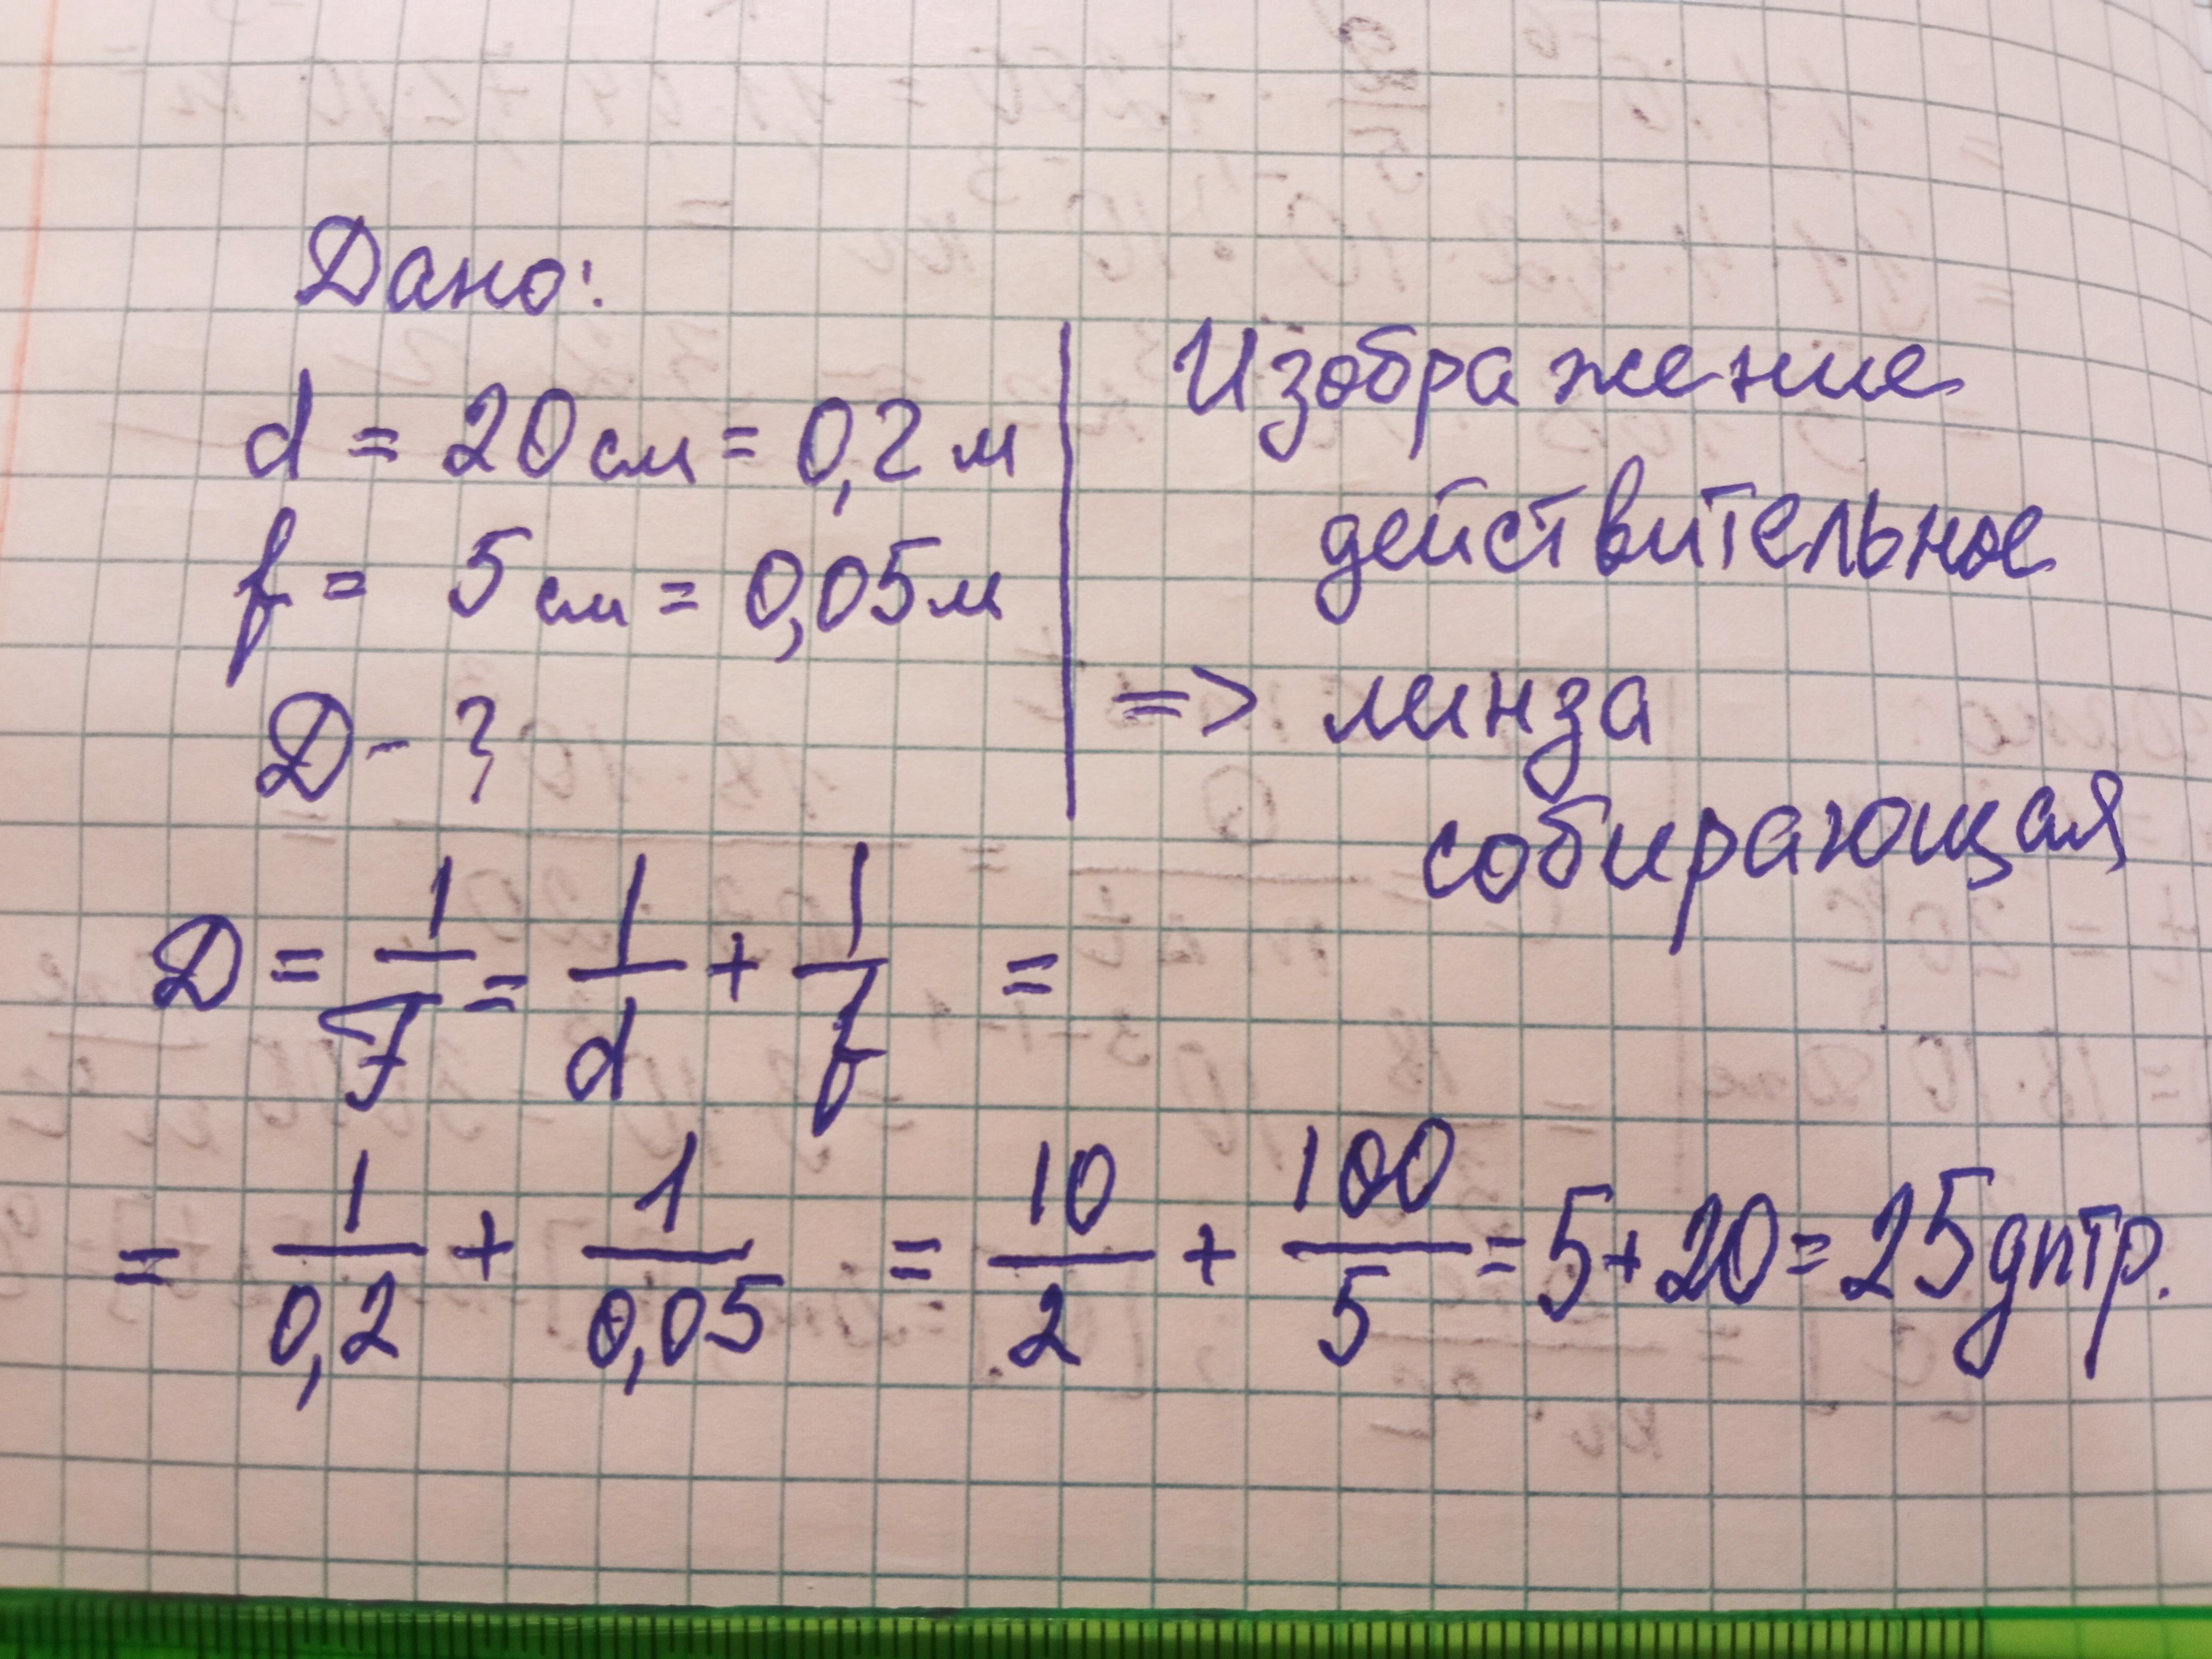 Дано:
d = 20 см = 0,2 м
f = 5 см = 0,05 м
D - ?
Изображение
действительное
=> линза
собирающая
D = 1/F = 1/d + 1/f =
= 1/0,2 + 1/0,05 = 10/2 + 100/5 = 5 + 20 = 25 дптр.